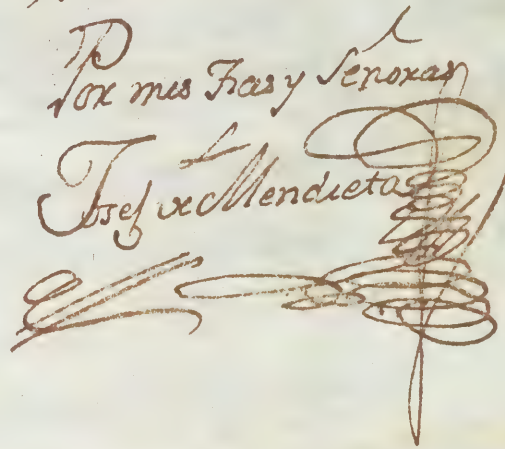 Por mis Tias y Señoras
Josef de Mendieta